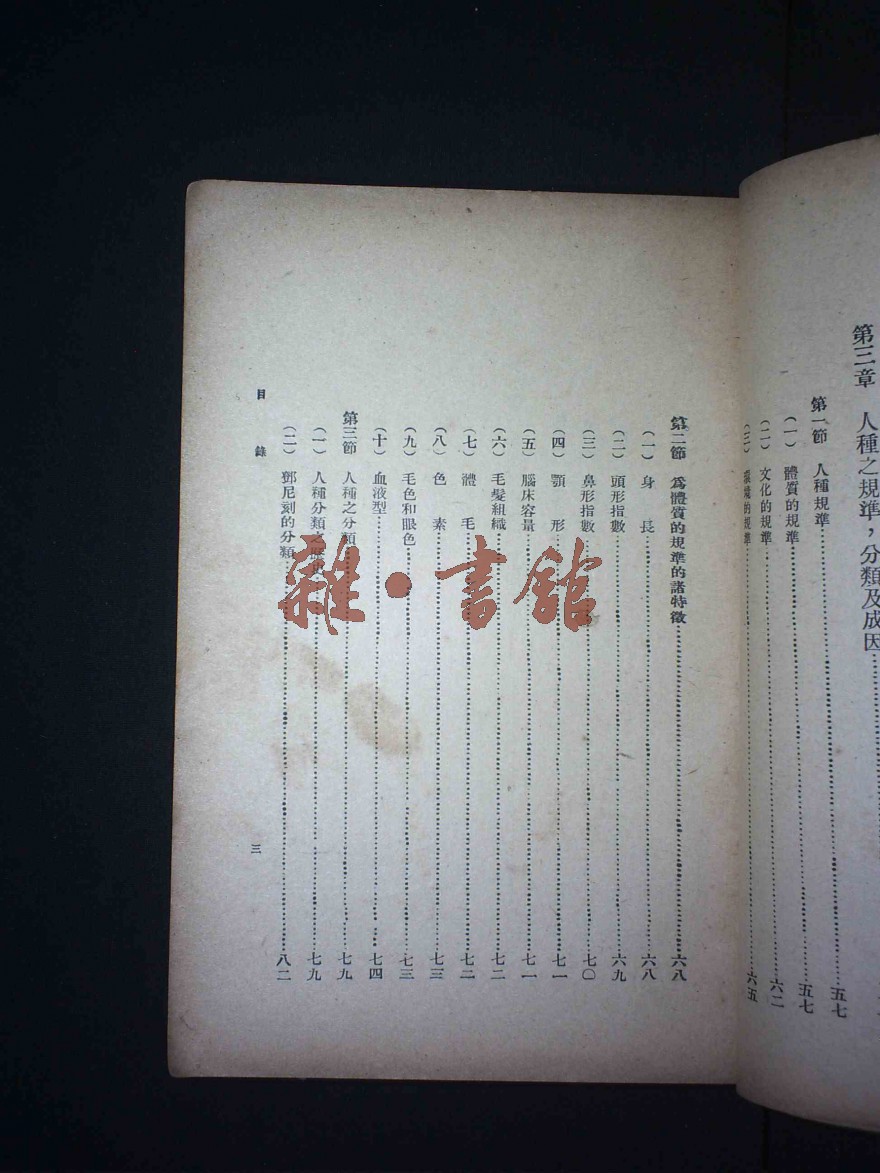 第三章　人種之規準，分類及成因
第一節　人種規準……五七
（一）體質的規準……五七
（二）文化的規準……六二
（三）環境的規準……六五
第二節　爲體質的規準的諸特徵……六八
（一）身　長……六八
（二）頭形指數……六九
（三）鼻形指數……七〇
（四）顎　形……七一
（五）腦床容量……七一
（六）毛髮組織……七二
（七）體　毛……七二
（八）色　素……七三
（九）毛色和眼色……七三
（十）血液型……七四
第三節　人種之分類……七九
（一）人種分類之……七九
（二）鄧尼刻的分類……八二
目　錄
三
雜·書館